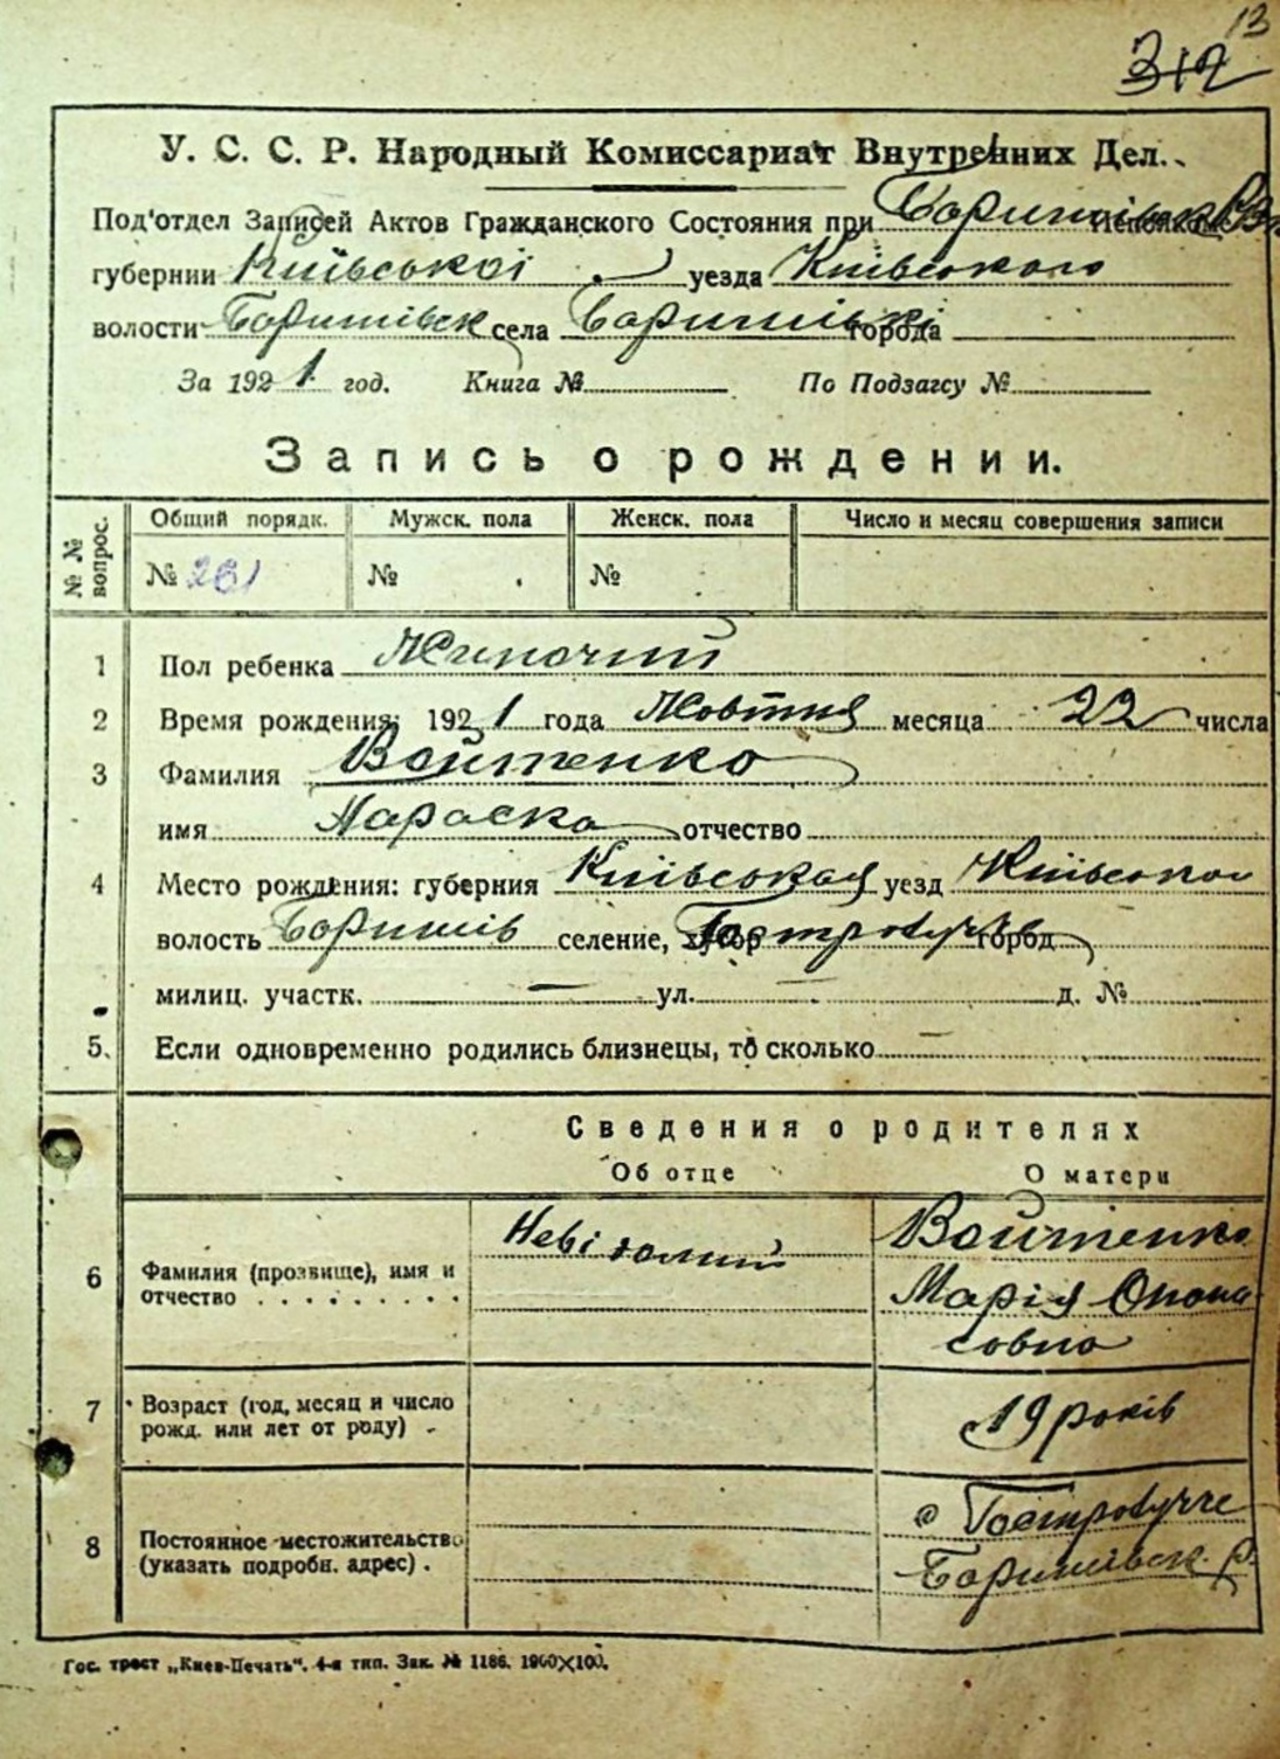 13
312
У. С. С. Р. Народный Комиссариат Внутренних Дел.
Под'отдел Записей Актов Гражданского Состояния при Баришівськ
губернии Київської уезда Київського
волости Баришівськ села Баришівкі города
За 1921 год. Книга № По Подзагсу №
Запись о рождении.
№ № вопрос. Общий порядк. Мужск. пола Женск. пола Число и месяц совершения записи
№ 261 № №
1 Пол ребенка Жиночий
2 Время рождения: 1921 года Жовтня месяца 22 числа
3 Фамилия Войтенко
имя Параска отчество
4 Место рождения: губерния Київськая уезд Київськой
волость Баришів селение, хутор Гостролуччє город
милиц. участк. — ул. — д. №
5. Если одновременно родились близнецы, то сколько —
Сведения о родителях
Об отце О матери
6 Фамилия (прозвище), имя и отчество Невідомий Войтенко
Марія Опона
совна
7 Возраст (год, месяц и число рожд. или лет от роду) 19 років
8 Постоянное местожительство (указать подробн. адрес). с Гостролуччє
Баришівськ. р.
Гос. трест „Киев-Печать". 4-я тип. Зак. № 1186. 1900×100.